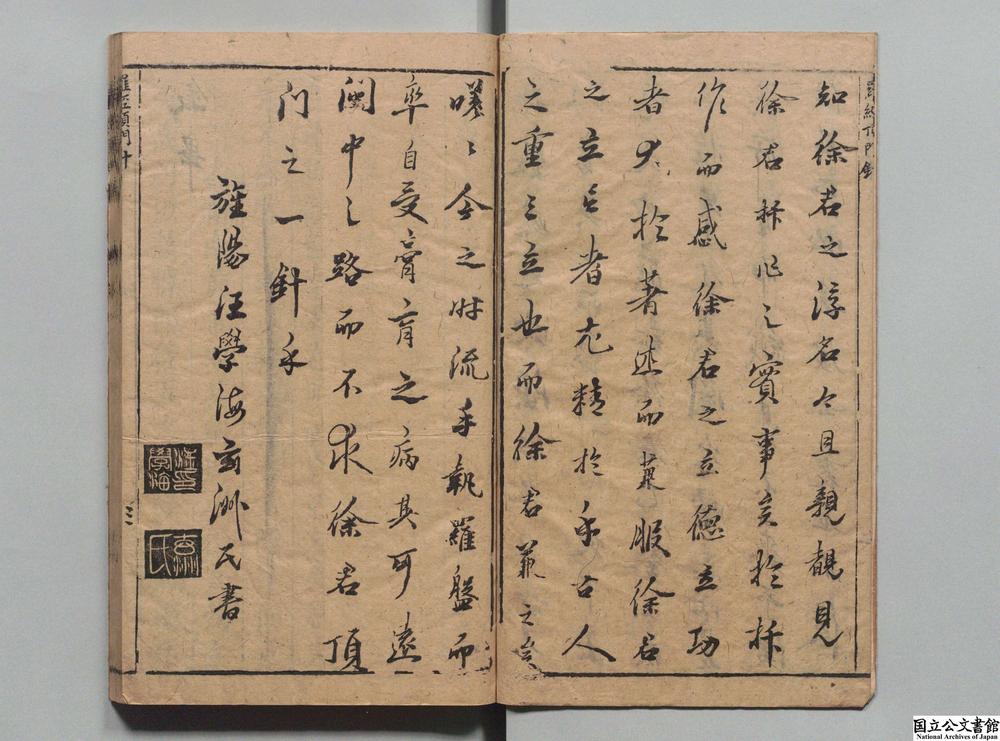 知徐君之浮名今且親覩見
徐君柝作之實事矣於柝
作而感徐君之立德立功
者大於著述而兼服徐君
之立言者尤精於乎古人
之重三立也而徐君兼之矣
嘆〻今之時流手執羅盤而
卒自受膏肓之病其可遠
閩中之路而不求徐君頂
門之一針乎
旌陽汪學海玄洲氏書
汪印學海
玄洲氏
羅經頂門針
三
国立公文書館
National Archives of Japan